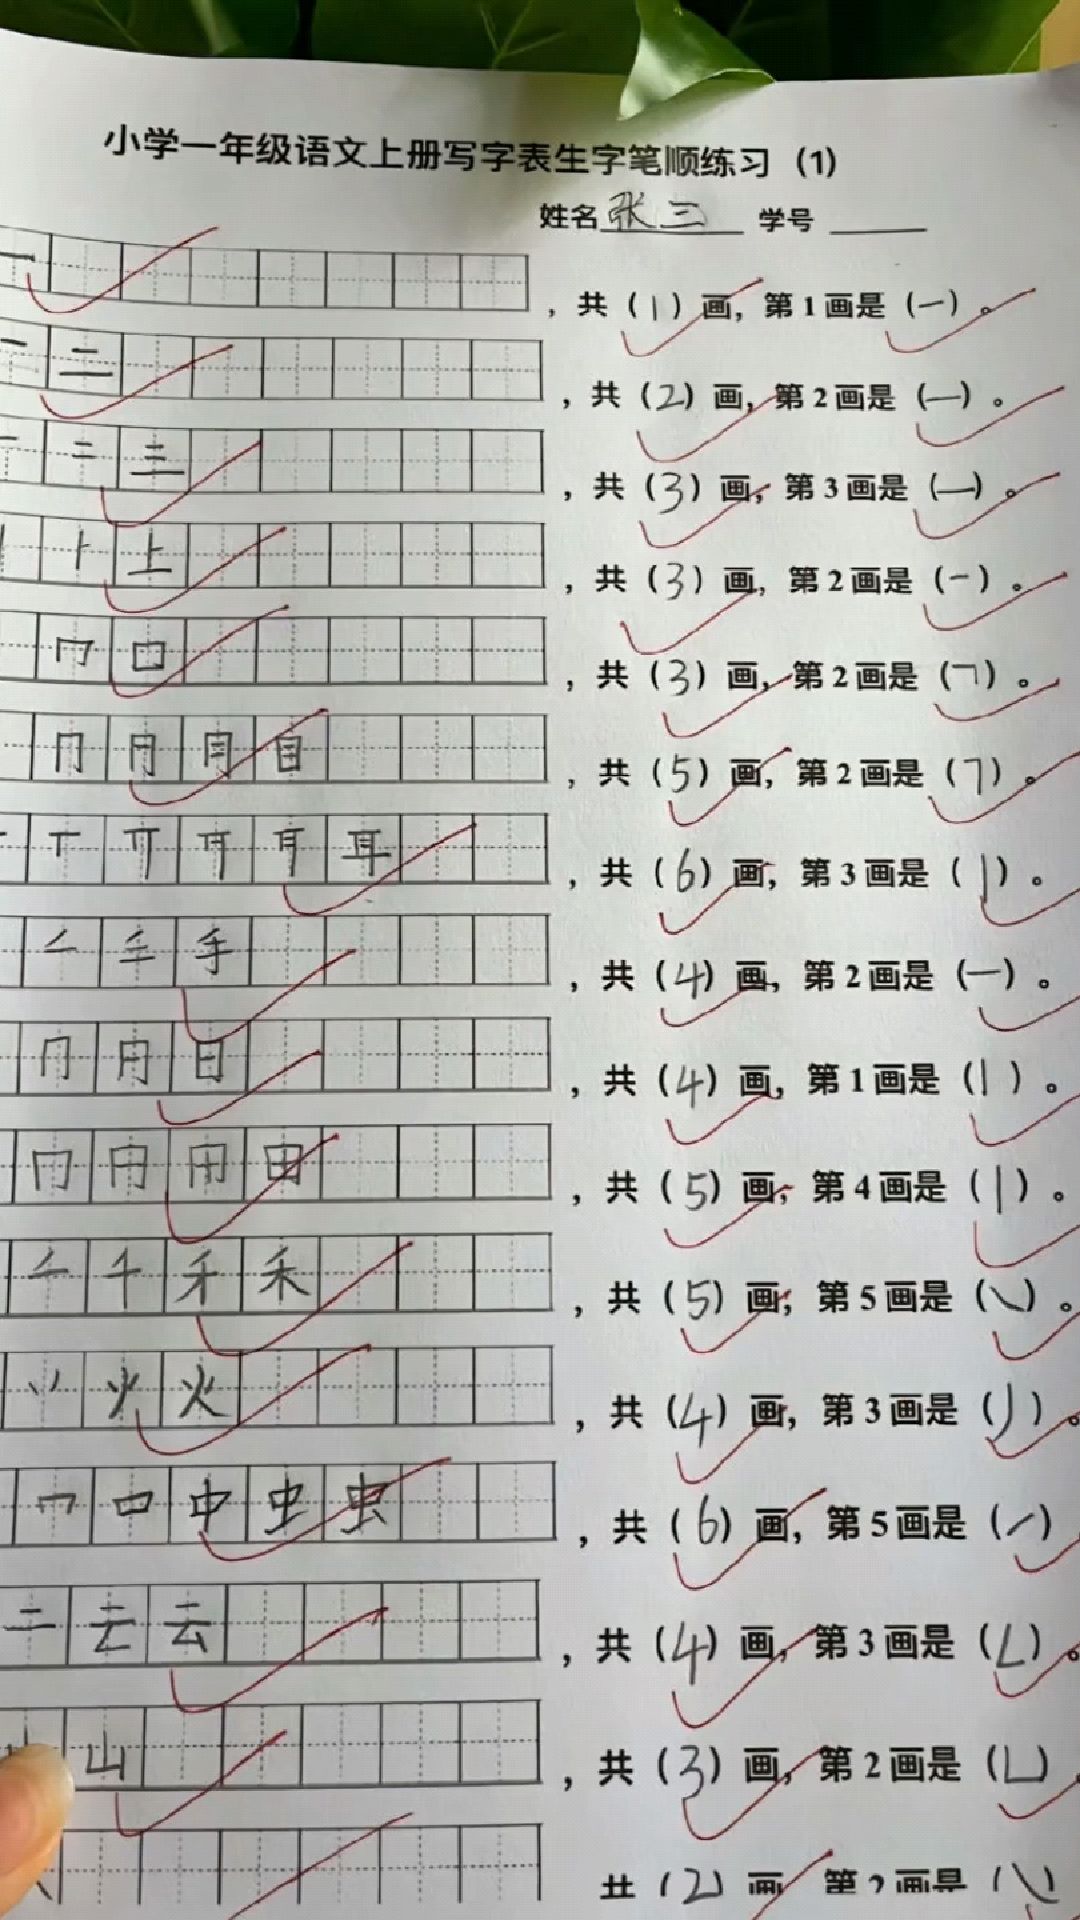 小学一年级语文上册写字表生字笔顺练习（1）
姓名 张三 学号
一 ，共（1）画，第1画是（一）。
一 二 ，共（2）画，第2画是（一）。
一 二 三 ，共（3）画，第3画是（一）。
丨 ⺊ 上 ，共（3）画，第2画是（一）。
冂 口 ，共（3）画，第2画是（㇕）。
冂 月 目 ，共（5）画，第2画是（㇆）。
一 丅 耳 ，共（6）画，第3画是（丨）。
手 ，共（4）画，第2画是（一）。
冂 日 ，共（4）画，第1画是（丨）。
冂 田 ，共（5）画，第4画是（丨）。
千 禾 ，共（5）画，第5画是（㇏）。
丷 火 ，共（4）画，第3画是（丿）。
口 中 虫 ，共（6）画，第5画是（㇀）
二 云 ，共（4）画，第3画是（㇜）。
山 ，共（3）画，第2画是（㇗）
共（2）画，第2画是（㇏）